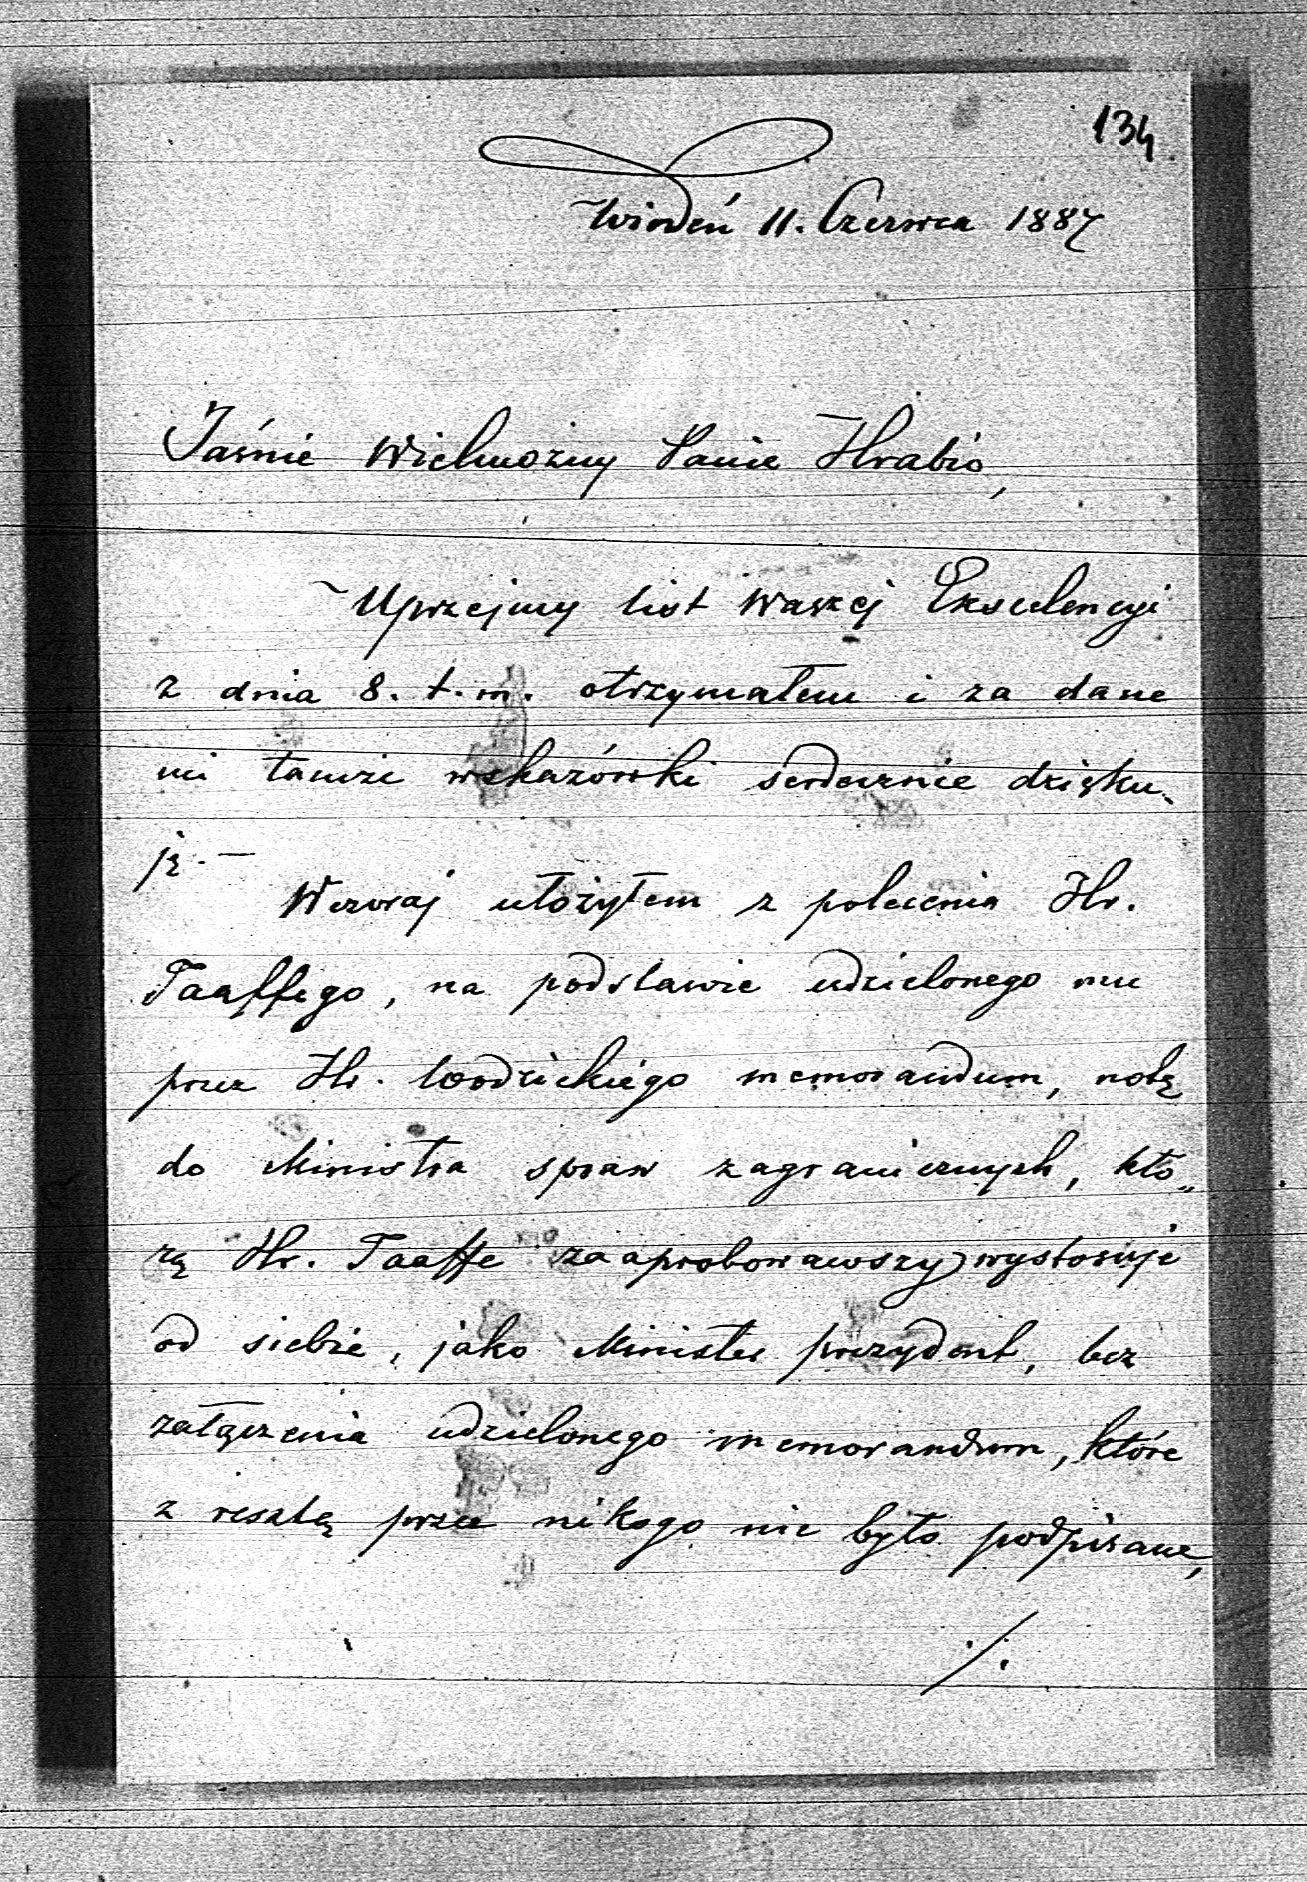 134
Wiedeń 11. Czerwca 1887
Jaśnie Wielmożny Panie Hrabio,
Uprzejmy list Waszej Ekscelencyi
z dnia 8. t. m. otrzymałem i za dane
mi tamże wskazówki serdecznie dzięku-
ję. —
Wczoraj ułożyłem z polecenia Hr.
Taaffego, na podstawie udzielonego mu
przez Hr. Wodzickiego memorandum, notę
do Ministra spraw zagranicznych, któ„
rą Hr. Taaffe zaaprobowawszy wystosuje
od siebie, jako Minister prezydent, bez
załączenia udzielonego memorandum, które
z resztą przez nikogo nie było podpisane,
./.